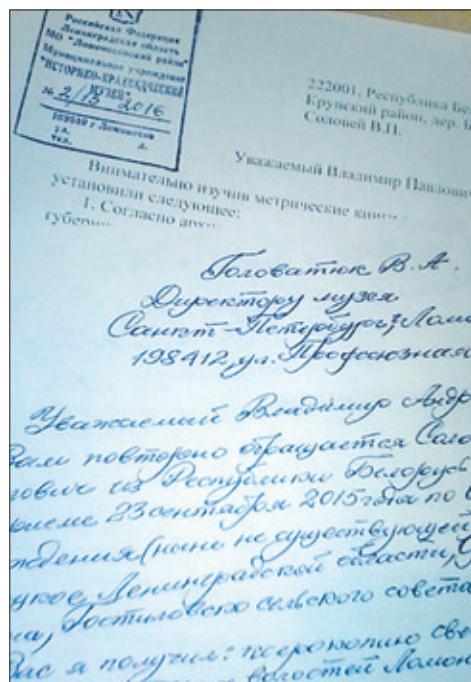 Российская Федерация
Ленинградская область
МО "Ломоносовский район"
Муниципальное учреждение
"ИСТОРИКО-КРАЕВЕДЧЕСКИЙ
МУЗЕЙ"
№ 2/13 2016
г Ломоносов
ул.
тел. д.
222001, Республика Бел
Крупский район, дер. Б
Соловей В.П.
Уважаемый Владимир Павлови
Внимательно изучив метрические книги
установили следующее:
1. Согласно
губерн
Головатюк В.А.
Директору музея
Санкт-Петербург, Ломо
198412, ул. Профсоюзная
Уважаемый Владимир Андр
Вам повторно обращается Соло
лович из Республики Белорус
23 сентября 2015 года по
ждения (ныне не существующей
Ленинградской области,
на, Гостиловско сельского совета
Вас я получил: ксерокопию све
волостей Ломон